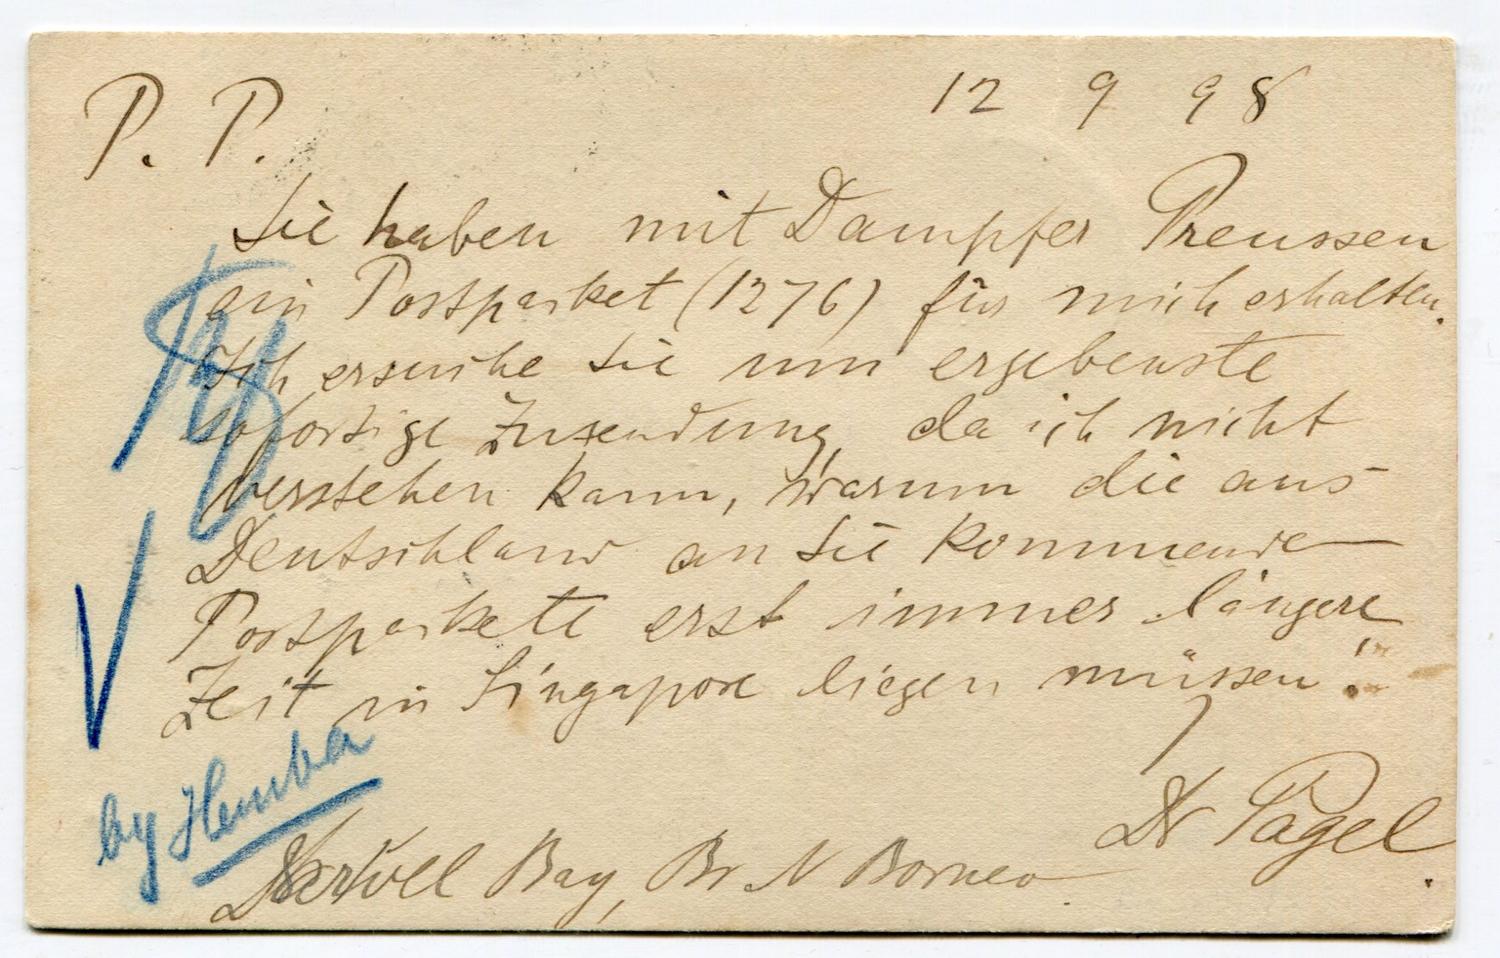 P. P.
12 9 98
Sie haben mit Dampfer Preussen
ein Postpacket (1276) für mich erhalten.
Ich ersuche Sie um ergebenste
sofortige Zusendung, da ich nicht
verstehen kann, warum die aus
Deutschland an Sie kommende
Postpackete erst immer längere
Zeit in Singapore liegen müssen!
Dr Pagel
by Hemba
Darvel Bay, Br N Borneo